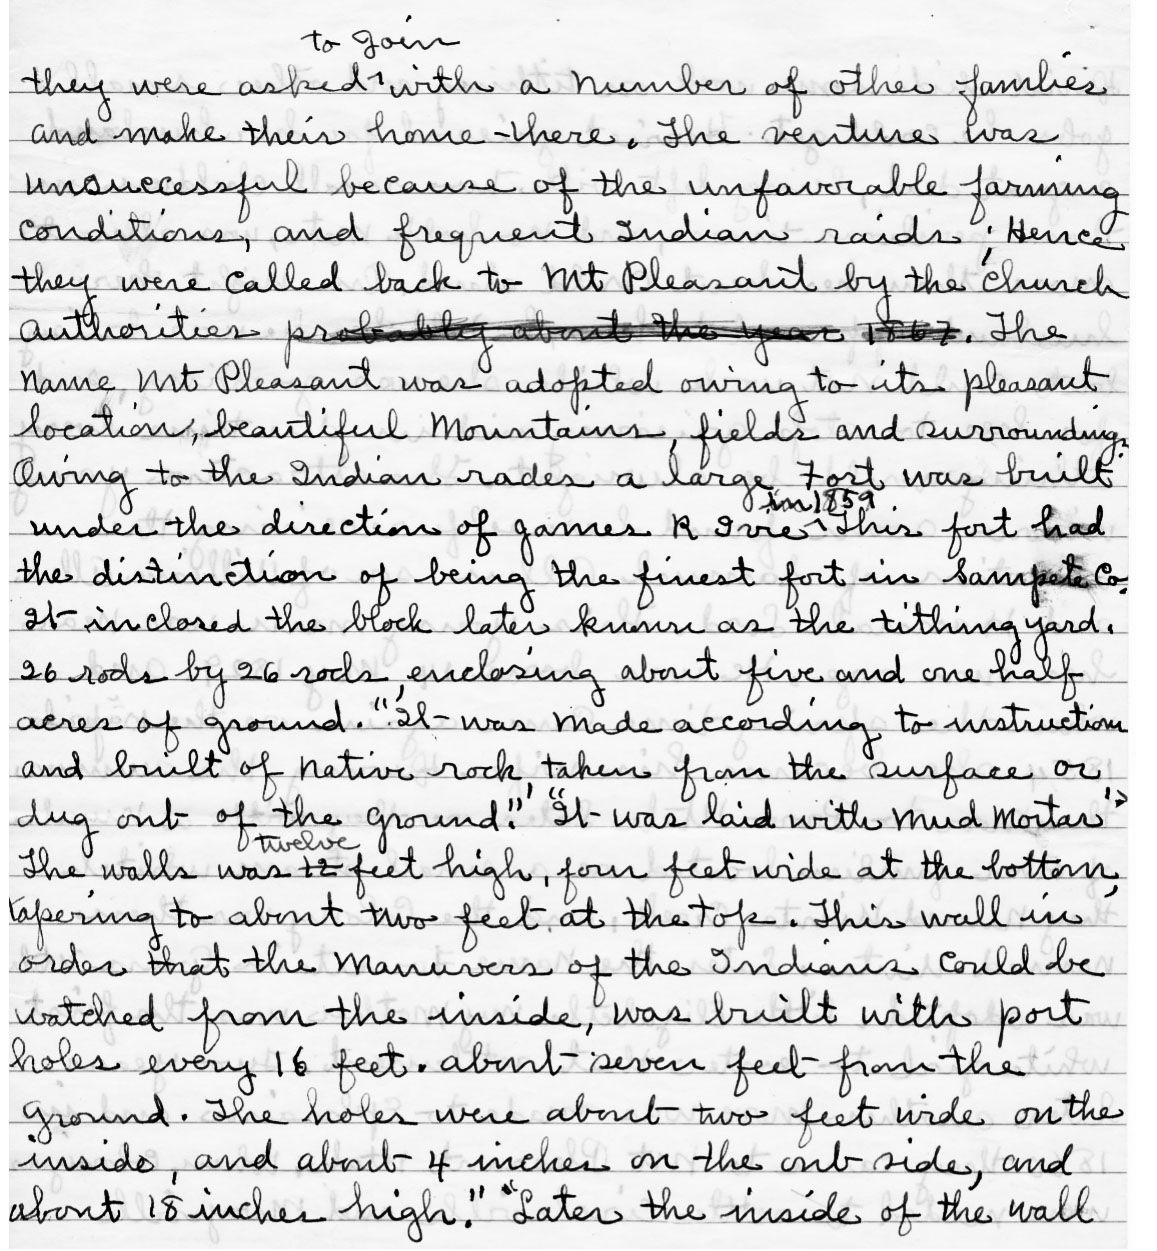 to join
they were asked ^ with a number of other families
and make their home there. The venture was
unsuccessful because of the unfavorable farming
conditions, and frequent Indian raids; Hence
they were called back to Mt Pleasant by the Church
authorities probably about the year 1867. The
name Mt Pleasant was adopted owing to its pleasant
location, beautiful Mountains, fields and surroundings.
Owing to the Indian rades a large Fort was built
in 1859
under the direction of James R Ivie ^ This fort had
the distinction of being the finest fort in Sampete Co.
It inclosed the block later known as the tithing yard.
26 rods by 26 rods, enclosing about five and one half
acres of ground. "It was made according to instruction
and built of native rock, taken from the surface or
dug out of the ground." "It was laid with mud mortar"
twelve
The walls was 12 feet high, four feet wide at the bottom,
tapering to about two feet at the top. This wall in
order that the Manuvers of the Indians could be
watched from the inside, was built with port
holes every 16 feet. about seven feet from the
ground. The holes were about two feet wide on the
inside, and about 4 inches on the out side, and
about 18 inches high." "Later the inside of the wall